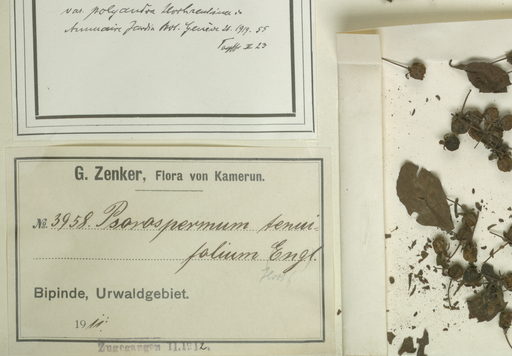 var. polyantha Hochreutiner in
Annuaire Jardin Bot. Genève 21. 1919. 55
G. Zenker, Flora von Kamerun.
№ 3958. Psorospermum tenui-
folium Engl.
Bipinde, Urwaldgebiet.
1911.
Zugegangen 11.1912.